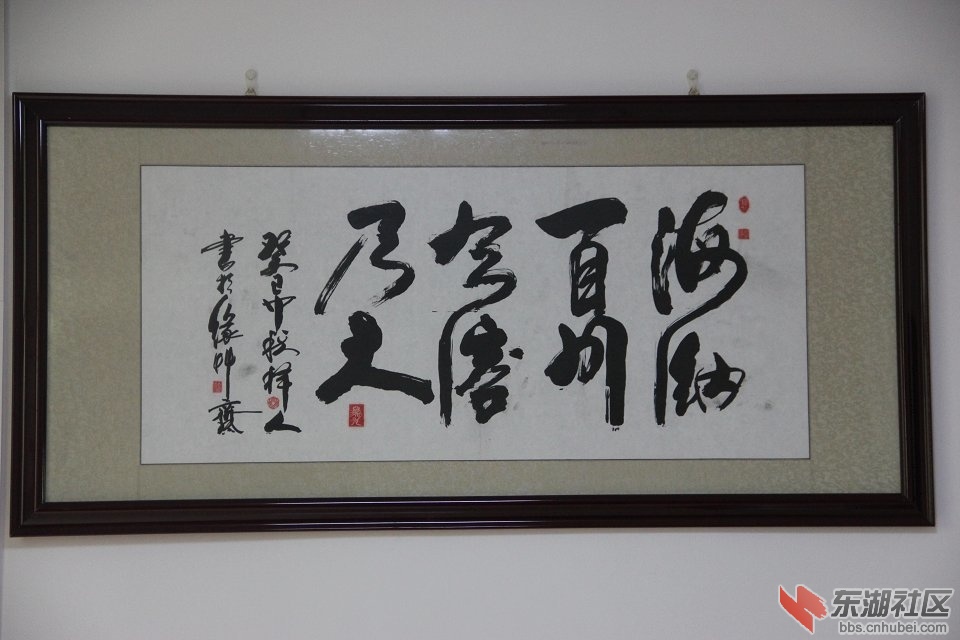 海纳
百川
有容
乃大
癸巳
书于缘
东湖社区
bbs.cnhubei.com